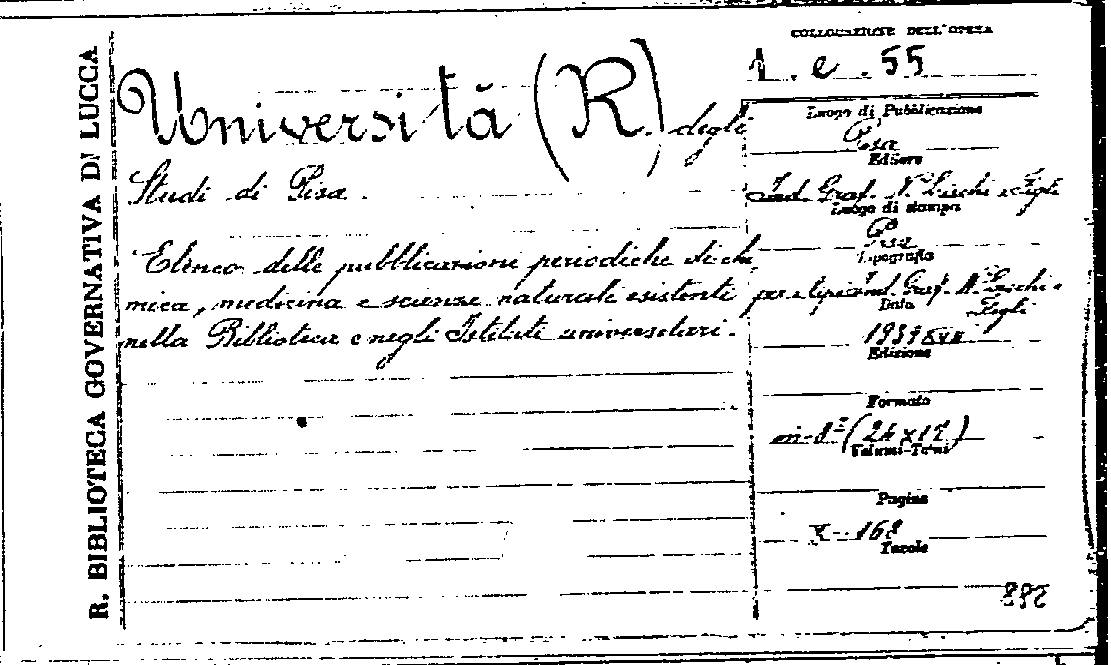 R. BIBLIOTECA GOVERNATIVA DI LUCCA
Università (R. degli
Studi di Pisa.
Elenco delle pubblicazioni periodiche di chi
mica, medicina e scienze naturali esistenti
nella Biblioteca e negli Istituti universitari.
COLLOCAZIONE DELL'OPERA
1. e. 55
Luogo di Pubblicazione
Pisa
Editore
Ind. Graf. V. Lischi e Figli
Luogo di stampa
Pisa
Tipografia
Ind. Graf. V. Lischi e
Figli
Data
1939 XVII
Edizione
Formato
in-8° (24x17)
Volumi-Tomi
Pagine
X-168
Tavole